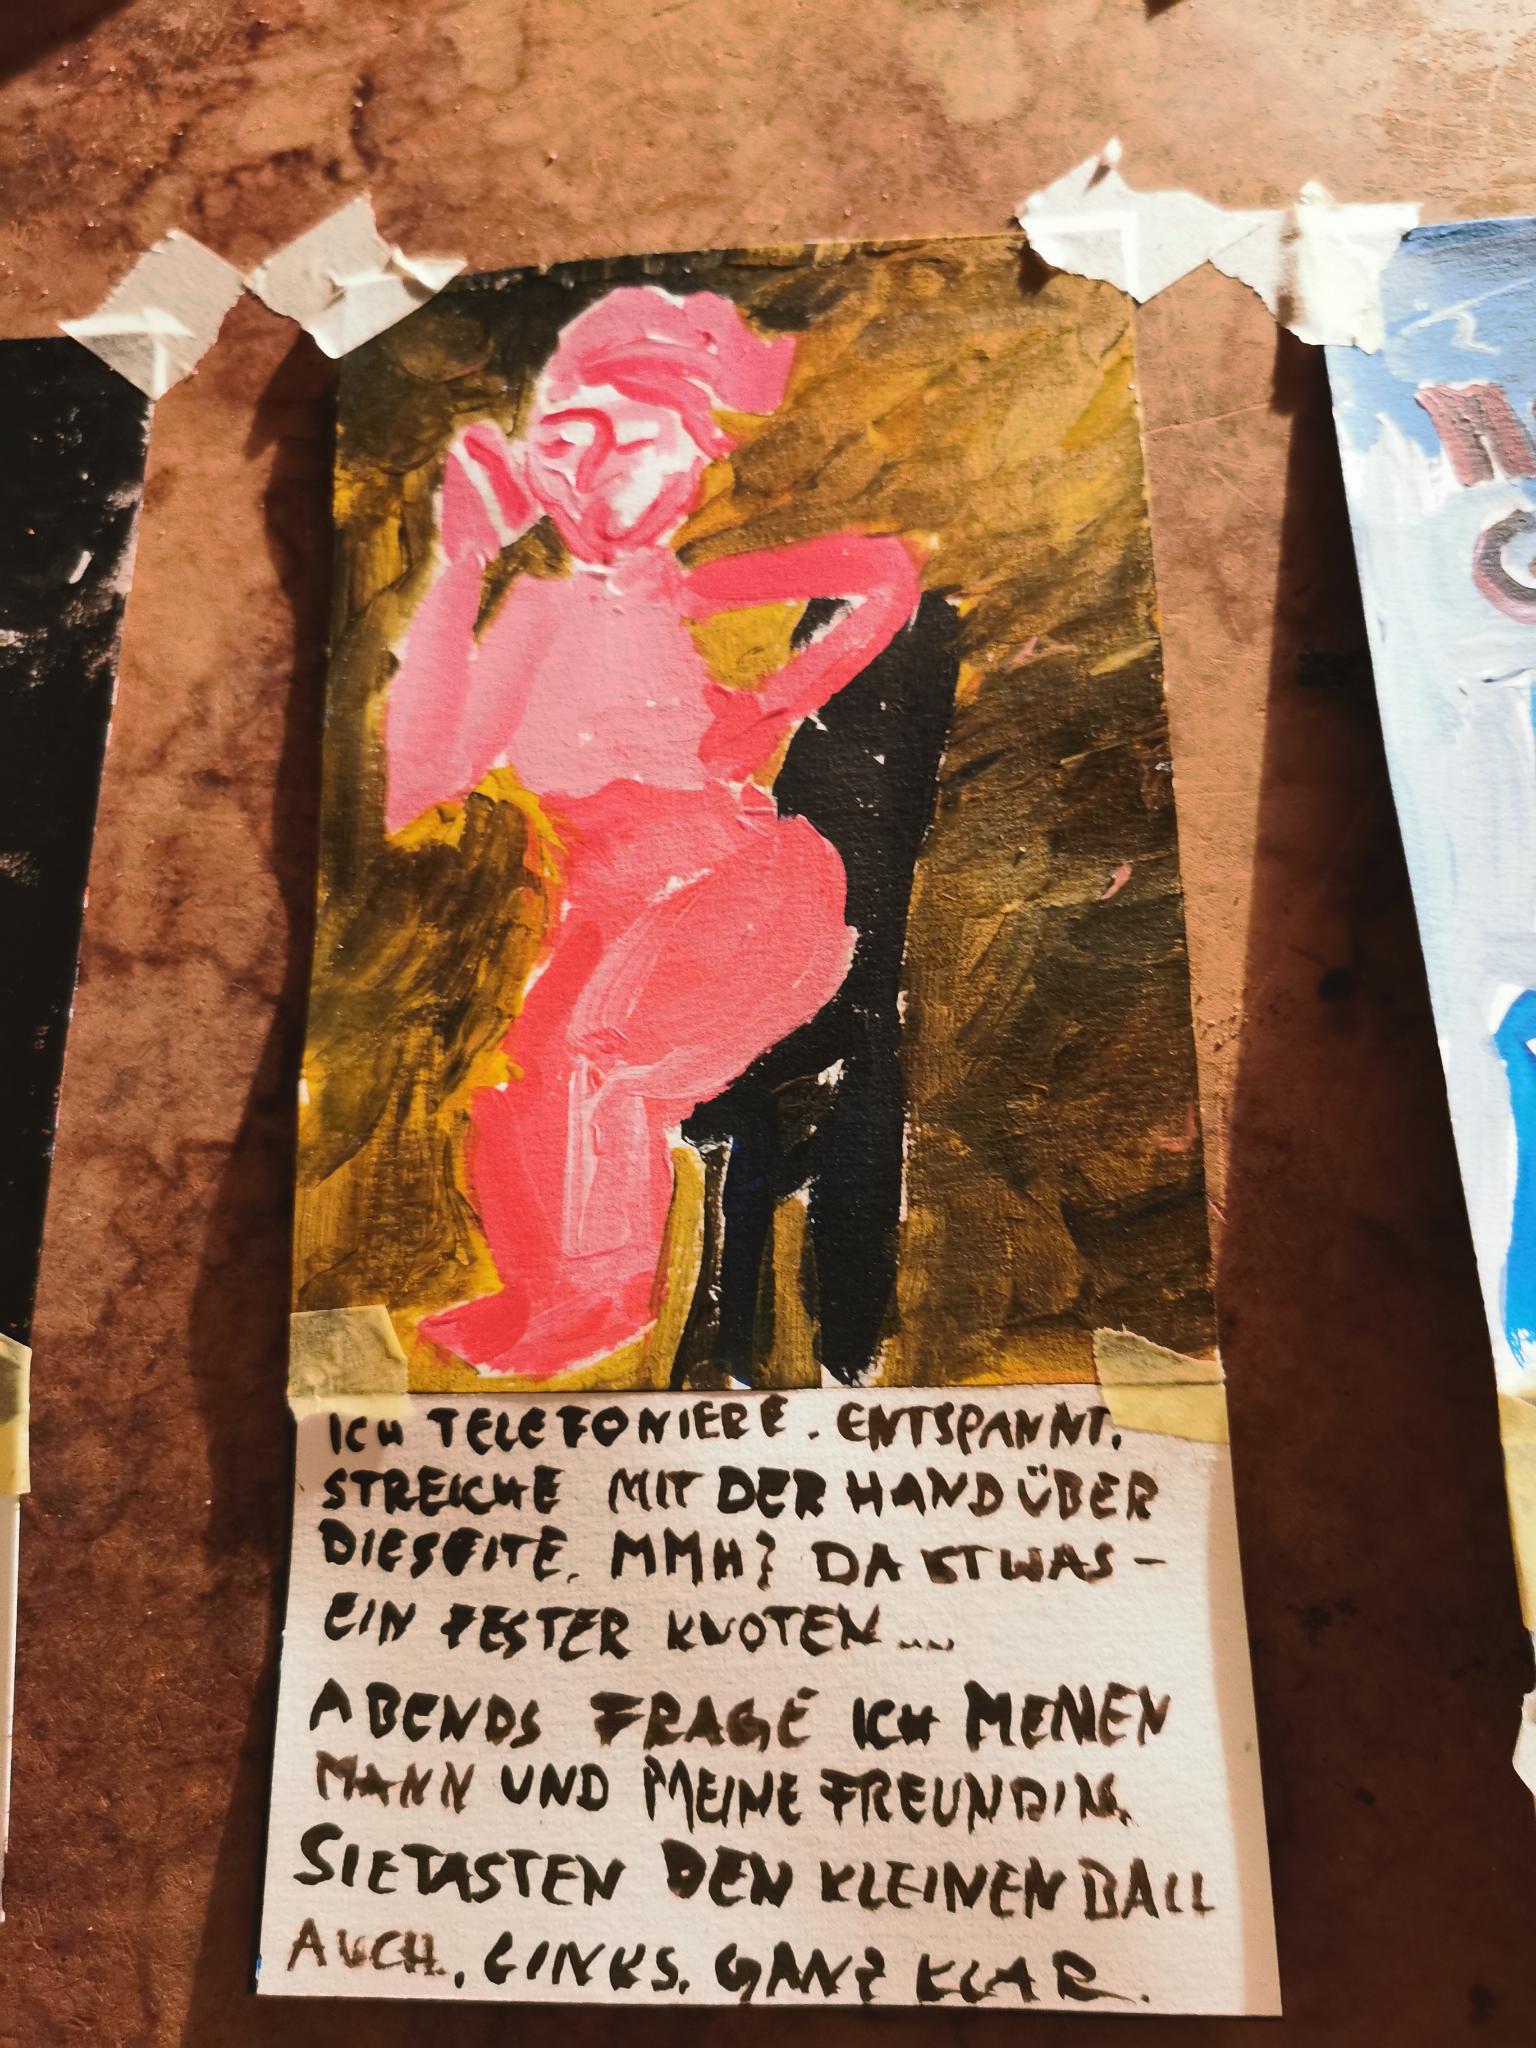 ICH TELEFONIERE. ENTSPANNT.
STREICHE MIT DER HAND ÜBER
DIESEITE. MMH? DA ETWAS –
EIN FESTER KNOTEN....
ABENDS FRAGE ICH MEINEN
MANN UND MEINE FREUNDIN.
SIE TASTEN DEN KLEINEN BALL
AUCH., LINKS. GANZ KLAR.